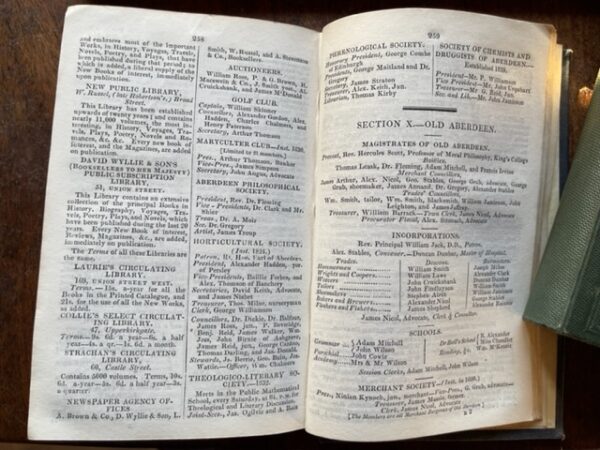 258
and embraces most of the Important
Works, in History, Voyages, Travels,
Novels, Poetry, and Plays, that have
been published during that period; to
which is added, a liberal supply of the
New Books of interest, immediately
upon publication.
NEW PUBLIC LIBRARY,
W. Russel, (late Robertson's,) Broad
Street.
This Library has been established
upwards of twenty years; and contains
nearly 11,000 volumes, the most in-
teresting, in History, Voyages, Tra-
vels, Plays, Poetry, Novels and Ro-
mances, &c. &c. Every new book of
interest, and the Magazines, are added
on publication.
DAVID WYLLIE & SON'S
(BOOKSELLERS TO HER MAJESTY)
PUBLIC SUBSCRIPTION
LIBRARY,
51, UNION STREET.
This Library contains an extensive
collection of the principal Books in
History, Biography, Voyages, Travels,
Poetry, Plays, and Novels, which
have been published during the last 20
years. Every New Book of Interest,
Reviews, Magazines, &c., are added,
immediately on publication.
The Terms of all these Libraries are
the same.
LAURIE'S CIRCULATING
LIBRARY.
169, UNION STREET WEST.
Terms.— 15s. a-year for all the
Books in the Printed Catalogue, and
21s. for the use of all the New Works,
as added.
COLLIE'S SELECT CIRCULAT-
ING LIBRARY,
47, Upperkirkgate.
STRACHAN'S CIRCULATING
LIBRARY,
60, Castle Street.
Contains 5000 volumes. Terms, 10s.
6d. a-year
a-quarter.
NEWSPAPER AGENCY OF-
FICES
A. Brown & Co., D. Wyllie & Son, L.
Smith, W. Russel, and A. Stevenson
& Co., Booksellers.
AUCTIONEERS.
William Ross, P. & G. Brown, H.
Macswein & Co., J. Smith
Cruickshank, and James M'Donald
GOLF CLUB.
Captain, William Skinner
Councillors, Alexander Gordon, Alex.
Hadden, Charles Chalmers, and
Henry Paterson
Secretary, Arthur Thomson
MARYCULTER CLUB—Inst. 1836.
(Limited to 21 members.)
Pres., Arthur Thomson, Banker
Vice-Pres., James Simpson
Secretary, John Angus, Advocate
ABERDEEN PHILOSOPHICAL
SOCIETY.
President, Rev. Dr. Fleming
Vice - Presidents, Dr. Clark and Mr.
Shier
Treas., Dr. A. Moir
Sec. Dr. Gregory
Artist, James Troup
HORTICULTURAL SOCIETY.
(Inst. 1824.)
Patron, Rt. Hon. Earl of Aberdeen
President, Alexander Hadden,
of Persley
Vice-Presidents, Baillie Forbes, and
Alex. Thomson of Banchory
Secretaries, David Keith, Advocate,
and James Nisbet
Treasurer, Thos. Milne, nurseryman
Clerk, George Williamson
Councillors, Dr. Dickie, Dr. Balfour,
James Ross,
Benj. Reid, James Walker, Wm.
Joss, John Birnie of Ashgrove,
James Reid, George Cadger,
Thomas Darling, and Jas. Donald
Stewards, Ja. Berrie, Geo. Bain, Jas.
Wattie,— Officer, W. Chalmers
THEOLOGICO-LITERARY SO-
CIETY.—1832.
Meets in the Public Mathematical
School, every Saturday, at 8¼ P.M. for
Theological and Literary Discussion.
Joint-Secs., Jas. Ogilvie and A. Bain
259
PHRENOLOGICAL SOCIETY.
Honorary President, George Combe
of Edinburgh
Presidents, George Maitland and Dr.
Gregory
Treasurer, James Straton
Secretary, Alex. Keith, Jun.
Librarian, Thomas Kirby
SOCIETY OF CHEMISTS AND
DRUGGISTS OF ABERDEEN.—
Established 1839.
President—Mr. P. Williamson
Vice-President—Mr. John Urquhart
Treasurer—Mr. G. Reid, Jun.
Sec. and Lib.—Mr. John Jamieson
SECTION X.—OLD ABERDEEN.
MAGISTRATES OF OLD ABERDEEN.
Provost, Rev. Hercules Scott, Professor of Moral Philosophy, King's College
Baillies.
Thomas Leask, Dr. Fleming, Adam Mitchell, and Francis Irvine
Merchant Councillors,
James Arthur, Alex. Nicol, Geo. Stables, George Grub, slievener, George
Grub, shoemaker, James Annand, Dr. Gregory, Alexander Stables
Trades' Councillors,
Wm. Smith, tailor, Wm. Smith, blacksmith, William Jamieson, John
Leighton, and James Jaffray.
Treasurer, William Barrack.—Town Clerk, James Nicol, Advocate
Procurator Fiscal, Alex. Simpson, Advocate
INCORPORATIONS.
Rev. Principal William Jack, D.D., Patron.
Alex. Stables, Convener.—Duncan Dunbar, Master of Hospital.
Trades. Deacons. Boxmasters.
Hammermen William Smith Joseph Milne
Wrights and Coopers William Laws Alexander Clark
Weavers John Cruickshank Duncan Dunbar
Tailors John Findlayson William Smith
Shoemakers Stephen Airth Alexander Stables
Bakers and Brewers Alexander Nicol George Stables
Fishers and Fleshers James Shepherd Alexander Rainnie
James Nicol, Advocate, Clerk & Assessor.
SCHOOLS.
Grammar Adam Mitchell
Parochial John Wilson
Academy John Cowie
Mrs & Mr. Wilson
Dr Bell's School R. Alexander
Miss Chandler
Reading, &c. Wm. M'Kenzie
Session Clerks, Adam Mitchell, John Wilson
MERCHANT SOCIETY.—(Inst. in 1680.)
Pres., Ninian Kynoch, jun., merchant.—Vice-Pres., G. Grub, advocate.
Treasurer, James Massie, farmer.
Clerk, James Nicol, Advocate
[The Members are all Merchant Burgesses of the Burgh]